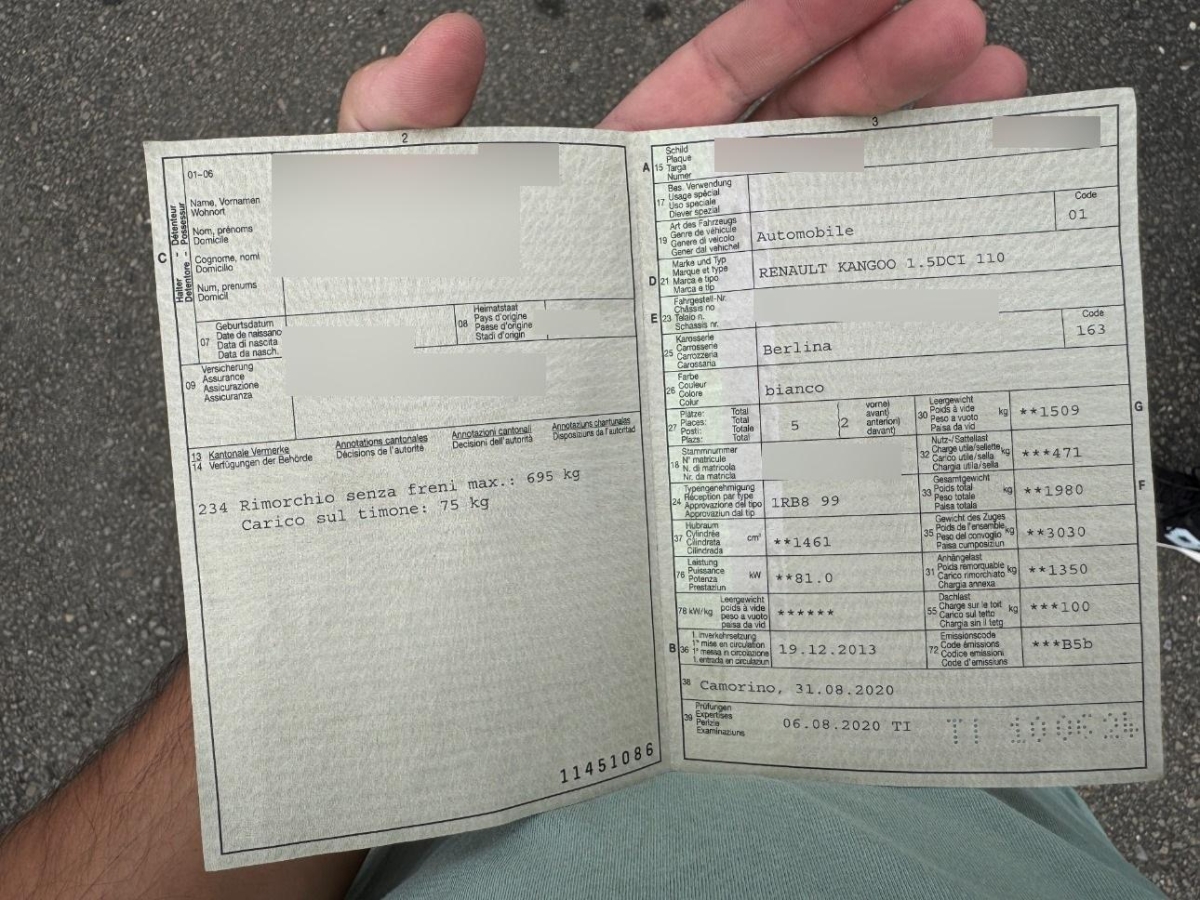 2
01-06
Name, Vornamen
Wohnort
Nom, prénoms
Domicile
Cognome, nomi
Domicilio
Num, prenums
Domicil
C
Halter - Détenteur
Detentore - Possessur
07
Geburtsdatum
Date de naissance
Data di nascita
Data da nasch.
08
Heimatstaat
Pays d'origine
Paese d'origine
Stadi d'origin
09
Versicherung
Assurance
Assicurazione
Assicuranza
13 Kantonale Vermerke
14 Verfügungen der Behörde
Annotations cantonales
Décisions de l'autorité
Annotazioni cantonali
Decisioni dell'autorità
Annotaziuns chantunalas
Disposiziuns da l'autoritad
234 Rimorchio senza freni max.: 695 kg
Carico sul timone: 75 kg
11451086
3
A 15
Schild
Plaque
Targa
Numer
17
Bes. Verwendung
Usage spécial
Uso speciale
Diever spezial
19
Art des Fahrzeugs
Genre de véhicule
Genere di veicolo
Gener dal vehichel
Automobile
Code
01
D 21
Marke und Typ
Marque et type
Marca e tipo
Marca e tip
RENAULT KANGOO 1.5DCI 110
E 23
Fahrgestell-Nr.
Châssis no
Telaio n.
Schassis nr.
25
Karosserie
Carrosserie
Carrozzeria
Carossaria
Berlina
Code
163
26
Farbe
Couleur
Colore
Colur
bianco
27
Plätze: Total
Places: Total
Posti: Totale
Plazs: Total
5
(2
vorne)
avant)
anteriori)
davant)
30
Leergewicht
Poids à vide
Peso a vuoto
Paisa da vid
kg
**1509
G
18
Stammnummer
N° matricule
N. di matricola
Nr. da matricla
32
Nutz-/Sattellast
Charge utile/sellette
Carico utile/sella
Chargia utila/sella
kg
***471
24
Typengenehmigung
Réception par type
Approvazione del tipo
Approvaziun dal tip
1RB8 99
33
Gesamtgewicht
Poids total
Peso totale
Paisa totala
kg
**1980
F
37
Hubraum
Cylindrée
Cilindrata
Cilindrada
cm³
**1461
35
Gewicht des Zuges
Poids de l'ensemble
Peso del convoglio
Paisa cumposiziun
kg
**3030
76
Leistung
Puissance
Potenza
Prestaziun
kW
**81.0
31
Anhängelast
Poids remorquable
Carico rimorchiato
Chargia annexa
kg
**1350
78 kW/kg
Leergewicht
poids à vide
peso a vuoto
paisa da vid
******
55
Dachlast
Charge sur le toit
Carico sul tetto
Chargia sin il tetg
kg
***100
B 36
1. Inverkehrsetzung
1re mise en circulation
1a messa in circolazione
1. entrada en circulaziun
19.12.2013
72
Emissionscode
Code émissions
Codice emissioni
Code d'emissiuns
***B5b
38
Camorino, 31.08.2020
39
Prüfungen
Expertises
Perizie
Examinaziuns
06.08.2020 TI